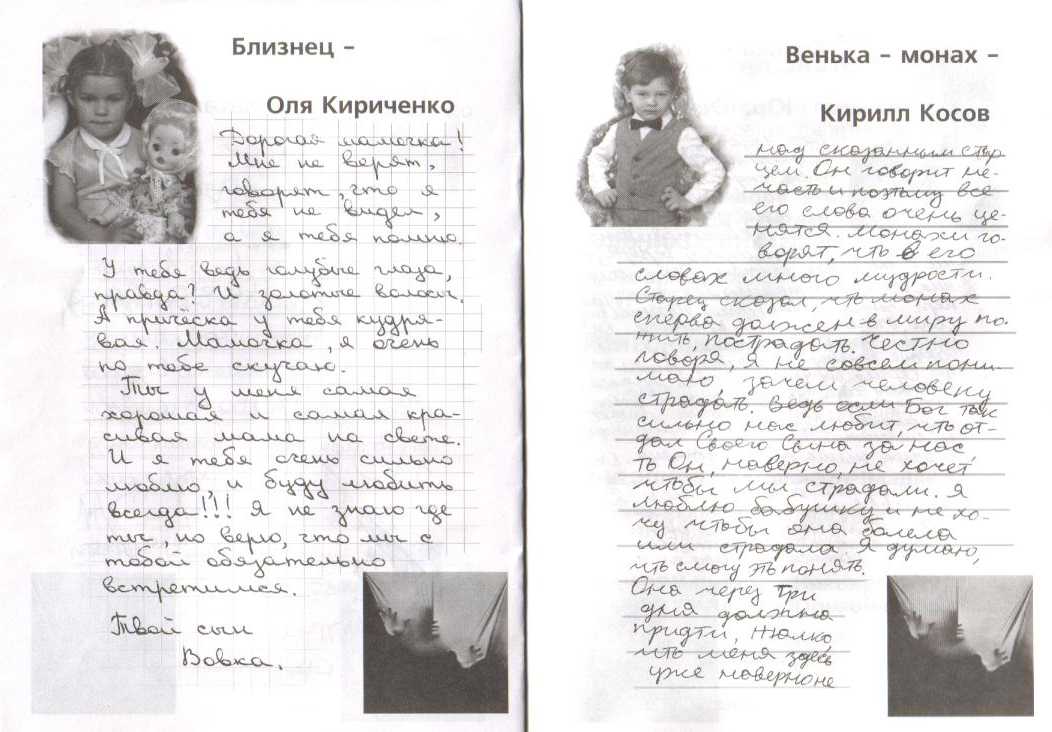 Близнец –
Оля Кириченко
Дорогая мамочка!
Мне не верят,
говорят, что я
тебя не видел,
а я тебя помню.
У тебя ведь голубые глаза,
правда? И золотые волосы.
А причёска у тебя кудря-
вая. Мамочка, я очень
по тебе скучаю.
Ты у меня самая
хорошая и самая кра-
сивая мама на свете.
И я тебя очень сильно
люблю, и буду любить
всегда!!! Я не знаю где
ты, но верю, что мы с
тобой обязательно
встретимся.
Твой сын
Вовка.
Венька – монах –
Кирилл Косов
над сказанным стар
цем. Он говорит не-
часто и поэтому все
его слова очень це-
нятся. Монахи го-
ворят, чть в его
словах много мудрости.
Старец сказал, чть монах
сперва должен в миру по-
жить, пострадать. Честно
говоря, я не совсем пони-
маю, зачем человеку
страдать. Ведь если Бог так
сильно нас любит, чть от-
дал Своего Сына за нас
ть Он, наверно, не хочет
чтобы мы страдали. Я
люблю бабушку и не хо-
чу чтобы она болела
или страдала. Я думаю,
чть смогу эть понять.
Она через три
дня должна
придти, жалко
чть меня здесь
уже наверное